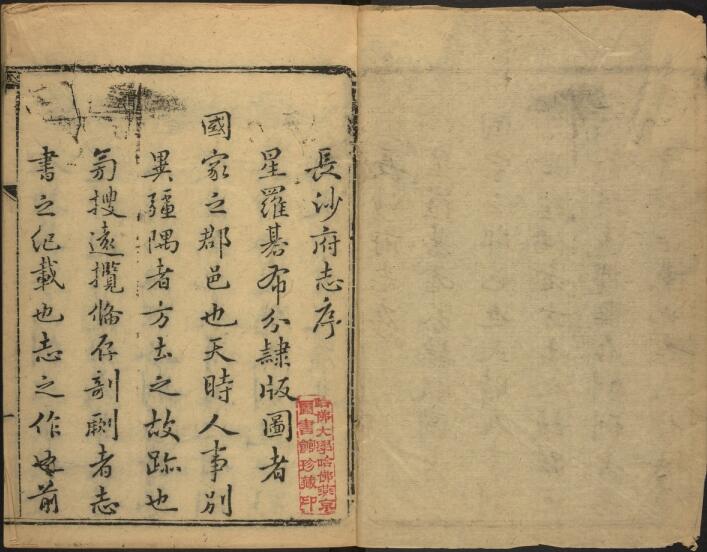 長沙府志序
星羅碁布分隸版圖者
國家之郡邑也天時人事別
異疆隅者方土之故跡也
旁搜遠攬備存剞劂者志
書之紀載也志之作也前
哈佛大學哈佛燕京
圖書館珍藏印